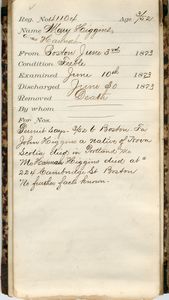 Reg. No. 41104 Age, 3/21
Name Mary Higgins
Mo Hannah
From Boston June 3rd 1873
Condition Feeble
Examined June 10th 1873
Discharged June 30 1873
Removed Death
By whom
For Nos.
Permit says 3/26 b Boston. Fa
John Higgins a native of Nova
Scotia died in Portland Me
Mo Hannah Higgins died at
224 Cambridge St Boston
No further facts known.